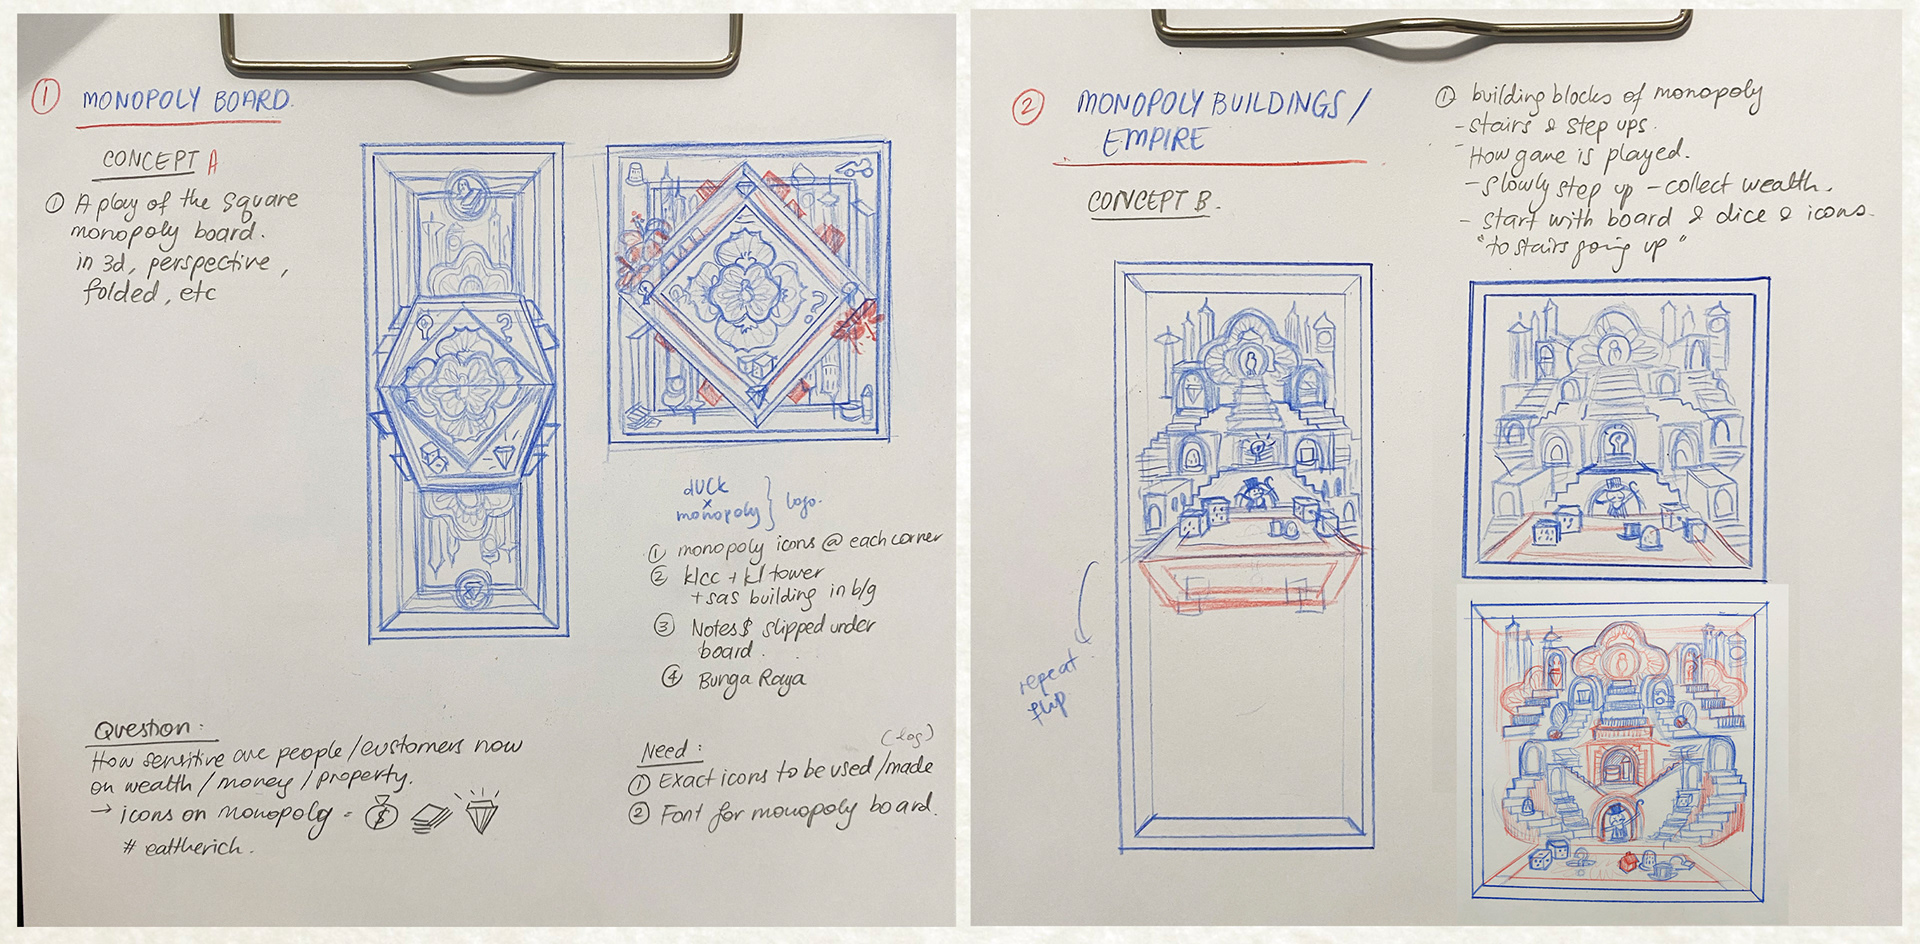 ① MONOPOLY BOARD.
CONCEPT A
① A play of the square
monopoly board.
in 3d, perspective,
folded, etc
?
?
duck
x
monopoly } logo.
① monopoly icons @ each corner
② klcc + kl tower
+ sas building in b/g
③ Notes $ slipped under
board.
④ Bunga Raya
Question:
How sensitive are people/customers now
on wealth/money/property.
→ icons on monopoly = $
# eattherich.
Need:
① Exact icons to be used/made
② Font for monopoly board.
② MONOPOLY BUILDINGS /
EMPIRE
CONCEPT B.
① building blocks of monopoly
- stairs & step ups.
- How game is played.
- slowly step up - collect wealth.
- start with board & dice & icons.
"to stairs going up"
repeat
flip